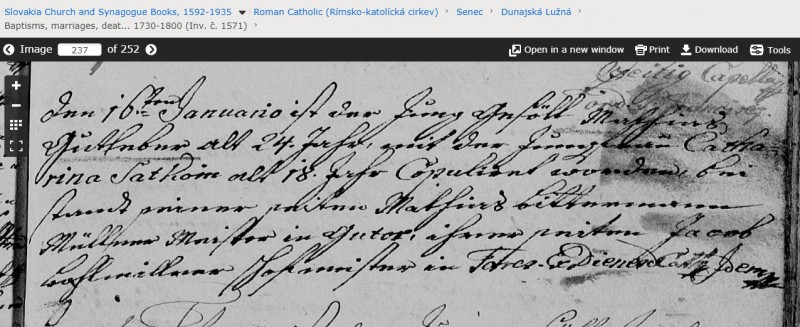 Slovakia Church and Synagogue Books, 1592-1935 Roman Catholic (Rímsko-katolícká cirkev) Senec Dunajská Lužná
Baptisms, marriages, deat... 1730-1800 (Inv. č. 1571)
Image 237 of 252 Open in a new window Print Download Tools
Heilig Capell
Den 16ten Januario ist der Jung Gesöll Mathias
Gutleber alt 24 Jahr, mit der Jungfrau Catha-
rina Sathoin alt 18 Jahr Copuliert worden, bei
standt seiner seiten Mathias bittermann
Müllner Meister in Gutor, ihrer seiten Jacob
Hofmeister in